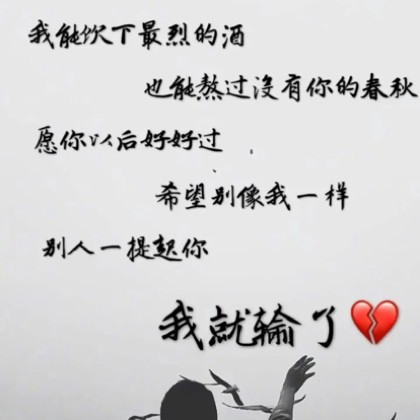 我能饮下最烈的酒
也能熬过没有你的春秋
愿你以后好好过
希望别像我一样
别人一提起你
我就输了💔